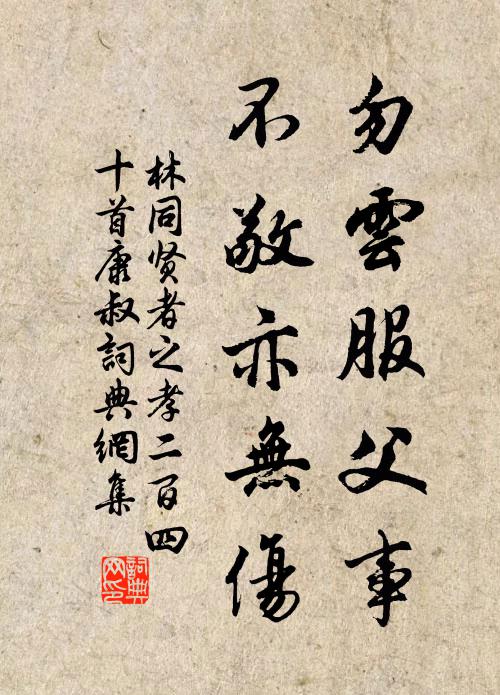 勿雲服父事
不敬亦無傷
林同贤者之孝二百四
十首康叔詞典網集
詞典
网印